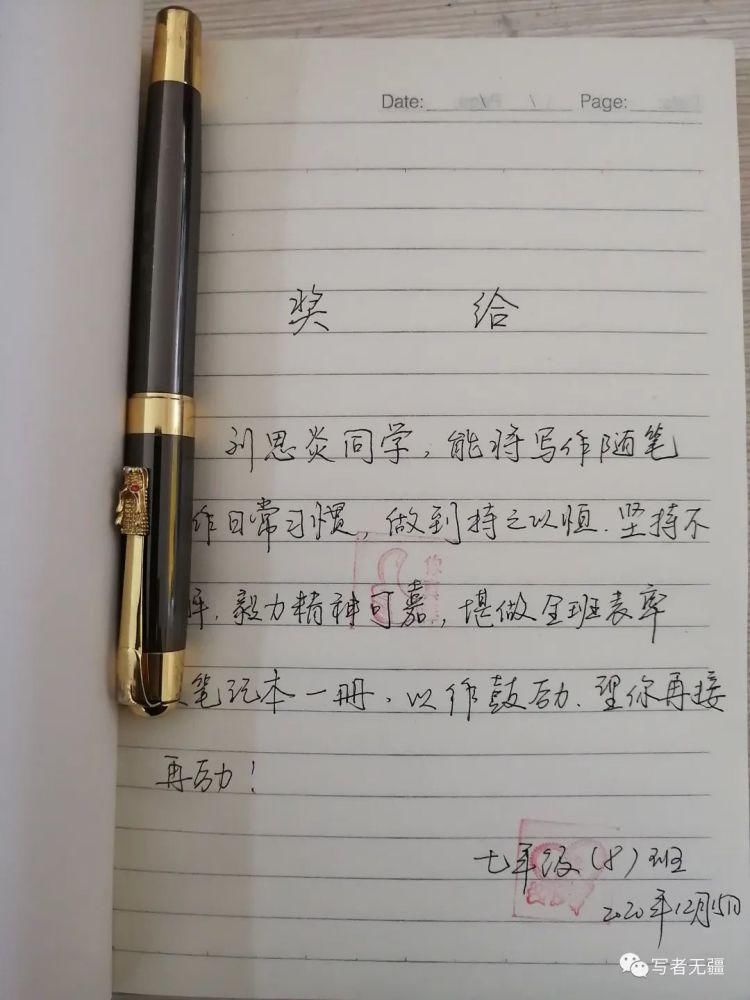 Date: / / Page:
奖 给
刘思炎同学，能将写作随笔
作日常习惯，做到持之以恒.坚持不
毅力精神可嘉，堪做全班表率
笔记本一册、以作鼓励.望你再接
再励！
七年级(8)班
2020年12月15日
写者无疆